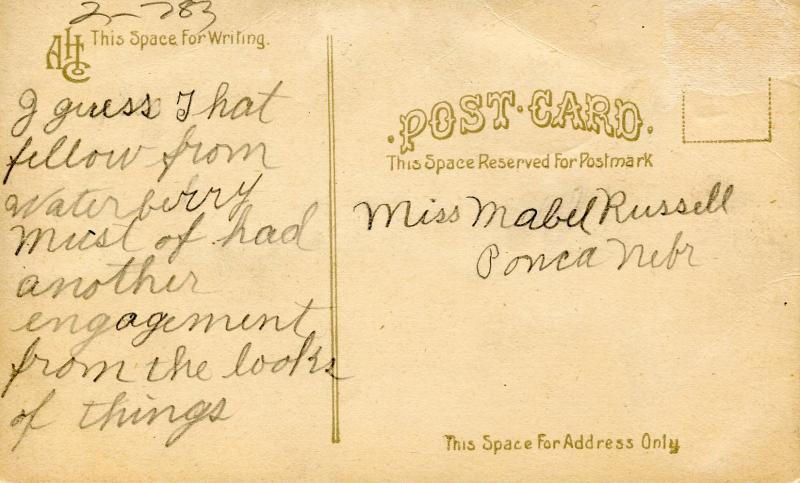 2-283
AHCo
This Space For Writing.
I guess That
fellow from
Waterberry
Must of had
another
engagement
from the looks
of things
POST·CARD.
This Space Reserved For Postmark
Miss Mabel Russell
Ponca Nebr
This Space For Address Only